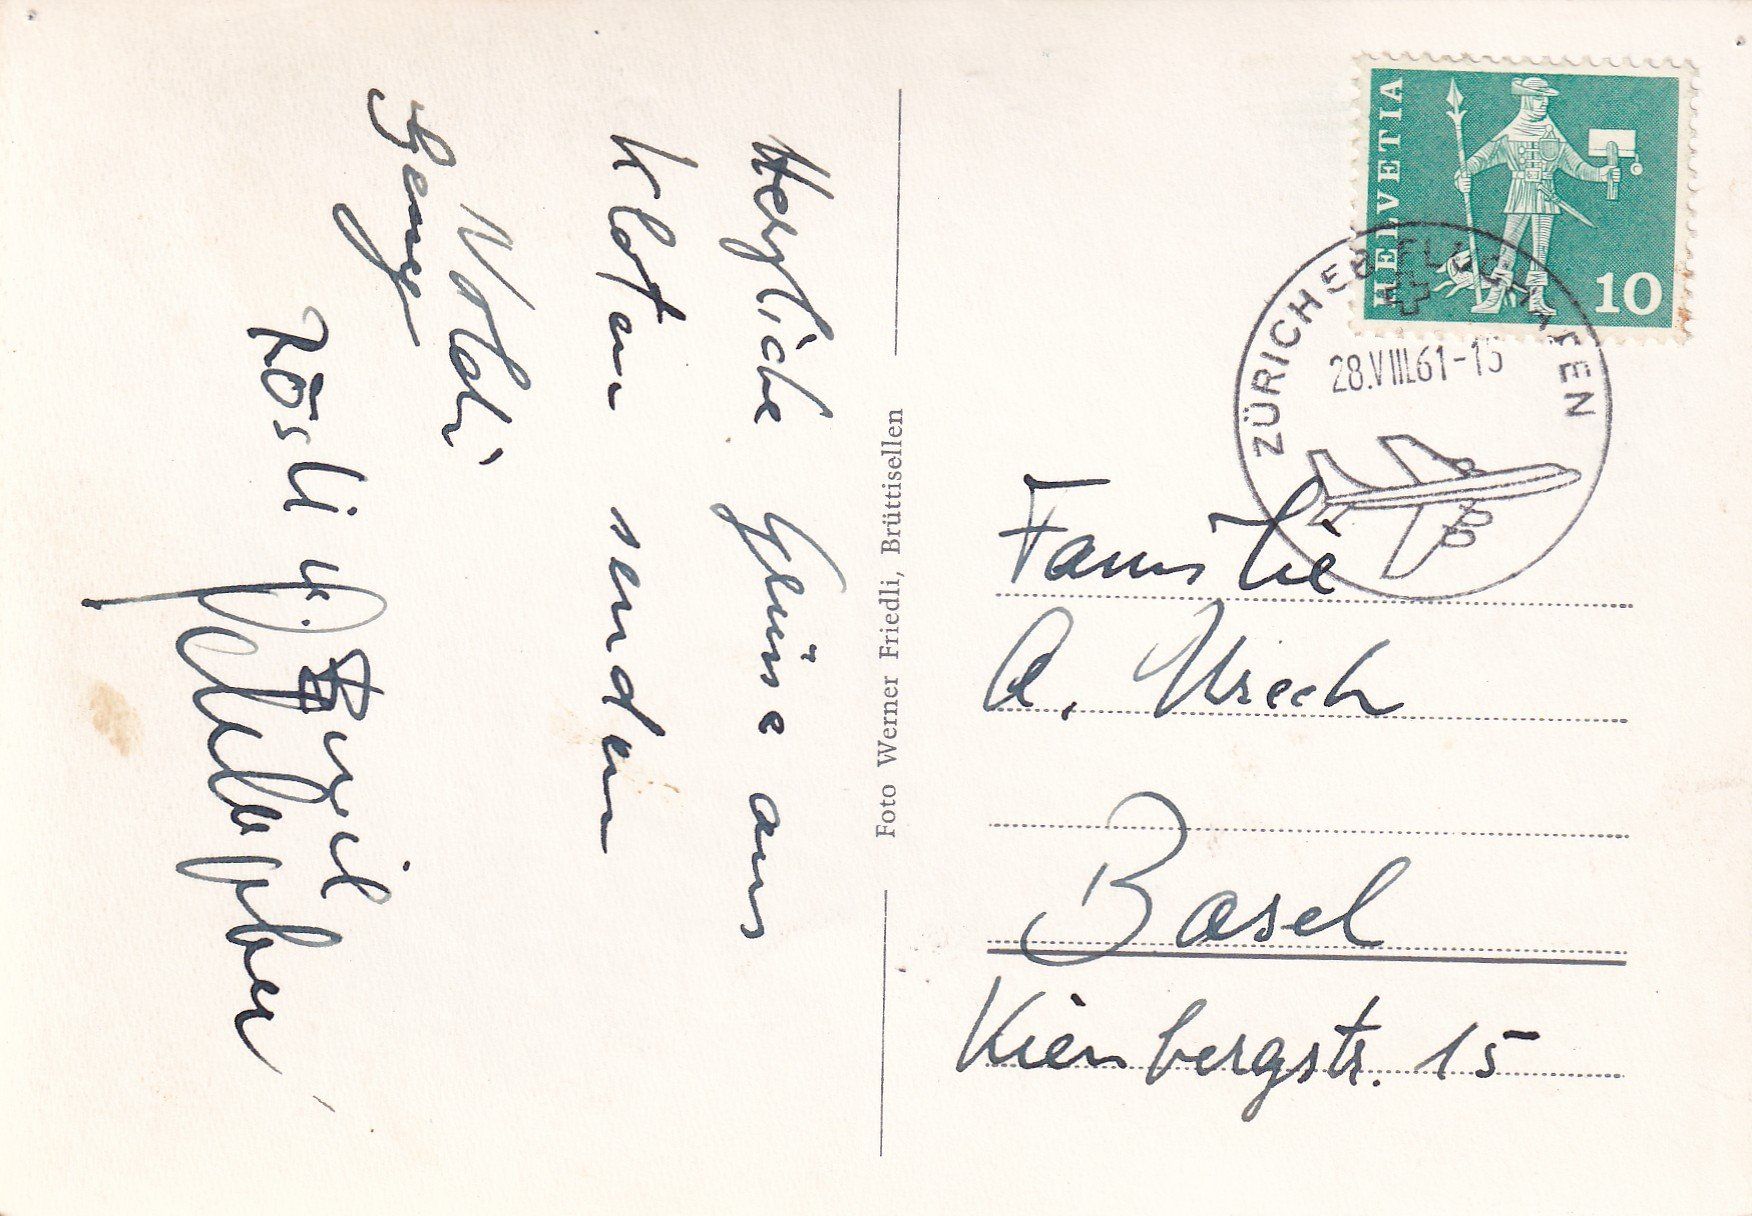 Herzliche Grüsse aus
Kloten senden
Noldi
Rösli u.
Foto Werner Friedli, Brüttisellen
HELVETIA
10
ZÜRICH FLUGHAFEN
28.VIII.61-15
Familie
A. Urech
Basel
Kienbergstr. 15